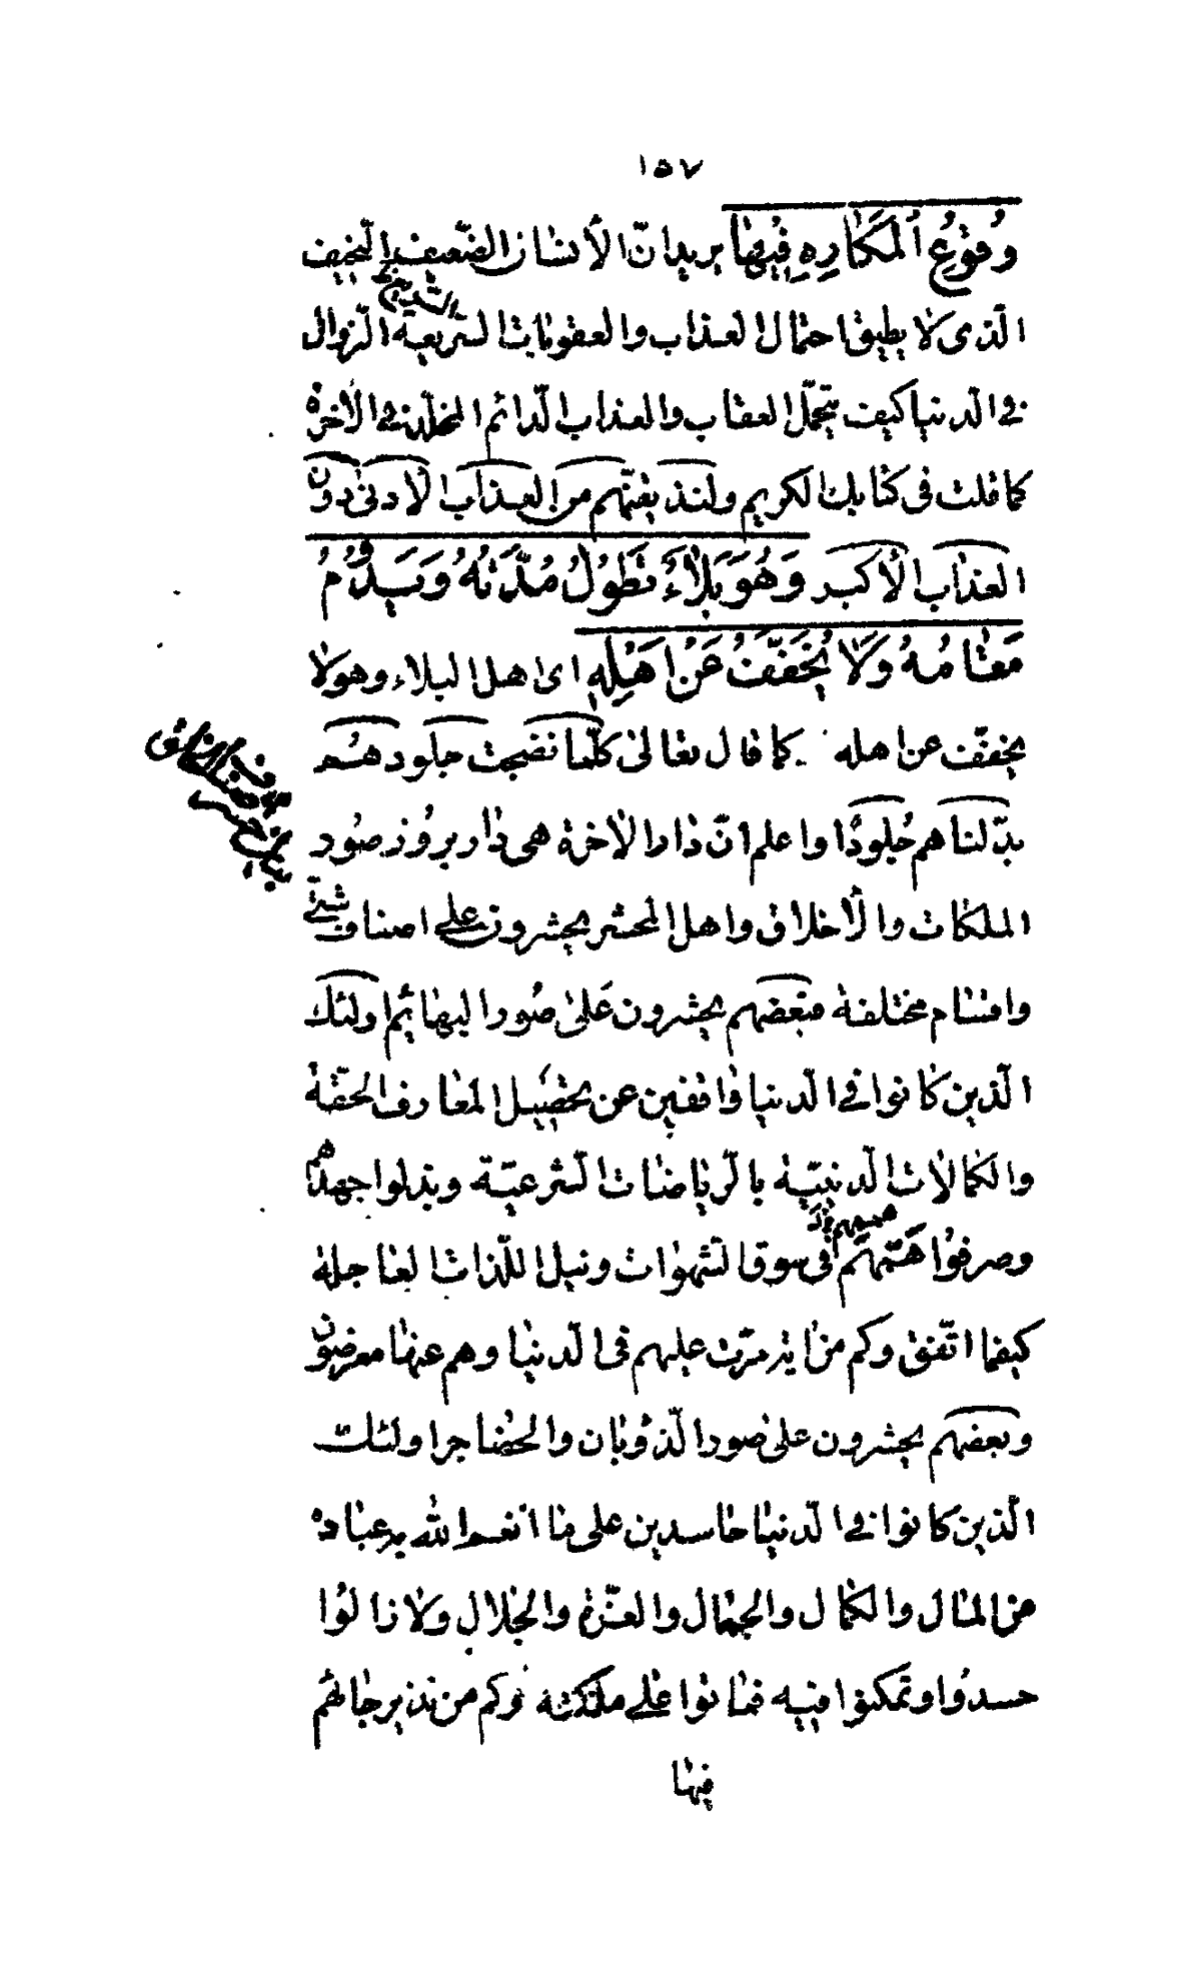 ١٥٧
وُقُوعُ ٱلْمَكَارِهِ فِيهَا يريد انّ الأنسان الضّعيف النّحيف
الّذى لا يطيق احتمال العذاب والعقوبات السّريعة الزّوال
فى الدّنيا كيف يتحمّل العقاب والعذاب الدّائم المخلّد فى الأخرة
كما قلت فى كتابك الكريم ولنذيقنّهم من العذاب الأدنى دون
العذاب الأكبر وَهُوَ بَلَاءٌ تَطُوْلُ مُدَّتُهُ وَيَدُوْمُ
مَقَامُهُ وَلَا يُخَفَّفُ عَنْ اَهْلِهِ اى اهل البلاء وهو لا
يخفّف عن اهله كما قال تعالى كلّما نضجت جلودهم
بدّلناهم جُلودًا واعلم انّ دار الاخرة هى دار بروز صُور
الملكات والأخلاق واهل المحشر يحشرون على اصناف شتّى
واقسام مختلفة فبعضهم يحشرون عَلى صُور البهائم اولئك
الّذين كانوا فى الدنيا واقفين عن تحصيل المعارف الحقّة
والكمالات الدينيّة بالرّياضات الشّرعيّة وبذلوا جهدهم
وصرفوا همّتهم فى سوق الشهوات ونيل اللّذات العاجلة
كيفما اتّفق وكم من اية مرّت عليهم فى الدنيا وهم عنها معرضون
وبعضهم يحشرون على صور الذّوبان والخنازير اولئك
الّذين كانوا فى الدنيا حاسدين على ما انعم الله به عباده
من المال والكمال والجمال والعزّة والجلال ولا زالوا
حسدوا وتمكنوا فيه فماتوا على ملكته وكم من نذير جائهم
فيها